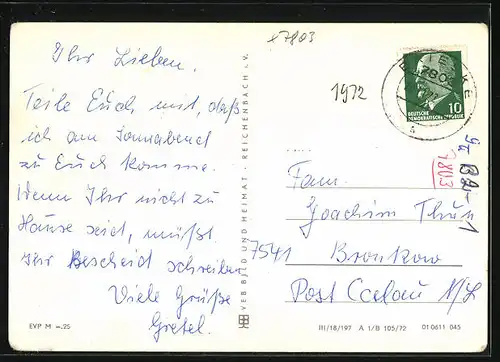 x7803
Ihr Lieben.
Teile Euch mit, daß
ich am Sonnabend
zu Euch komme.
Wenn Ihr nicht zu
Hause seid, müßt
Ihr Bescheid schreiben
Viele Grüße
Gretel.
EVP M -.25
VEB BILD UND HEIMAT · REICHENBACH i. V.
1972
10
DEUTSCHE
DEMOKRATISCHE REPUBLIK
7803
Fam.
Joachim Thun
7541 Bronkow
Post Calau N/L
III/18/197 A 1/B 105/72 01 0611 045